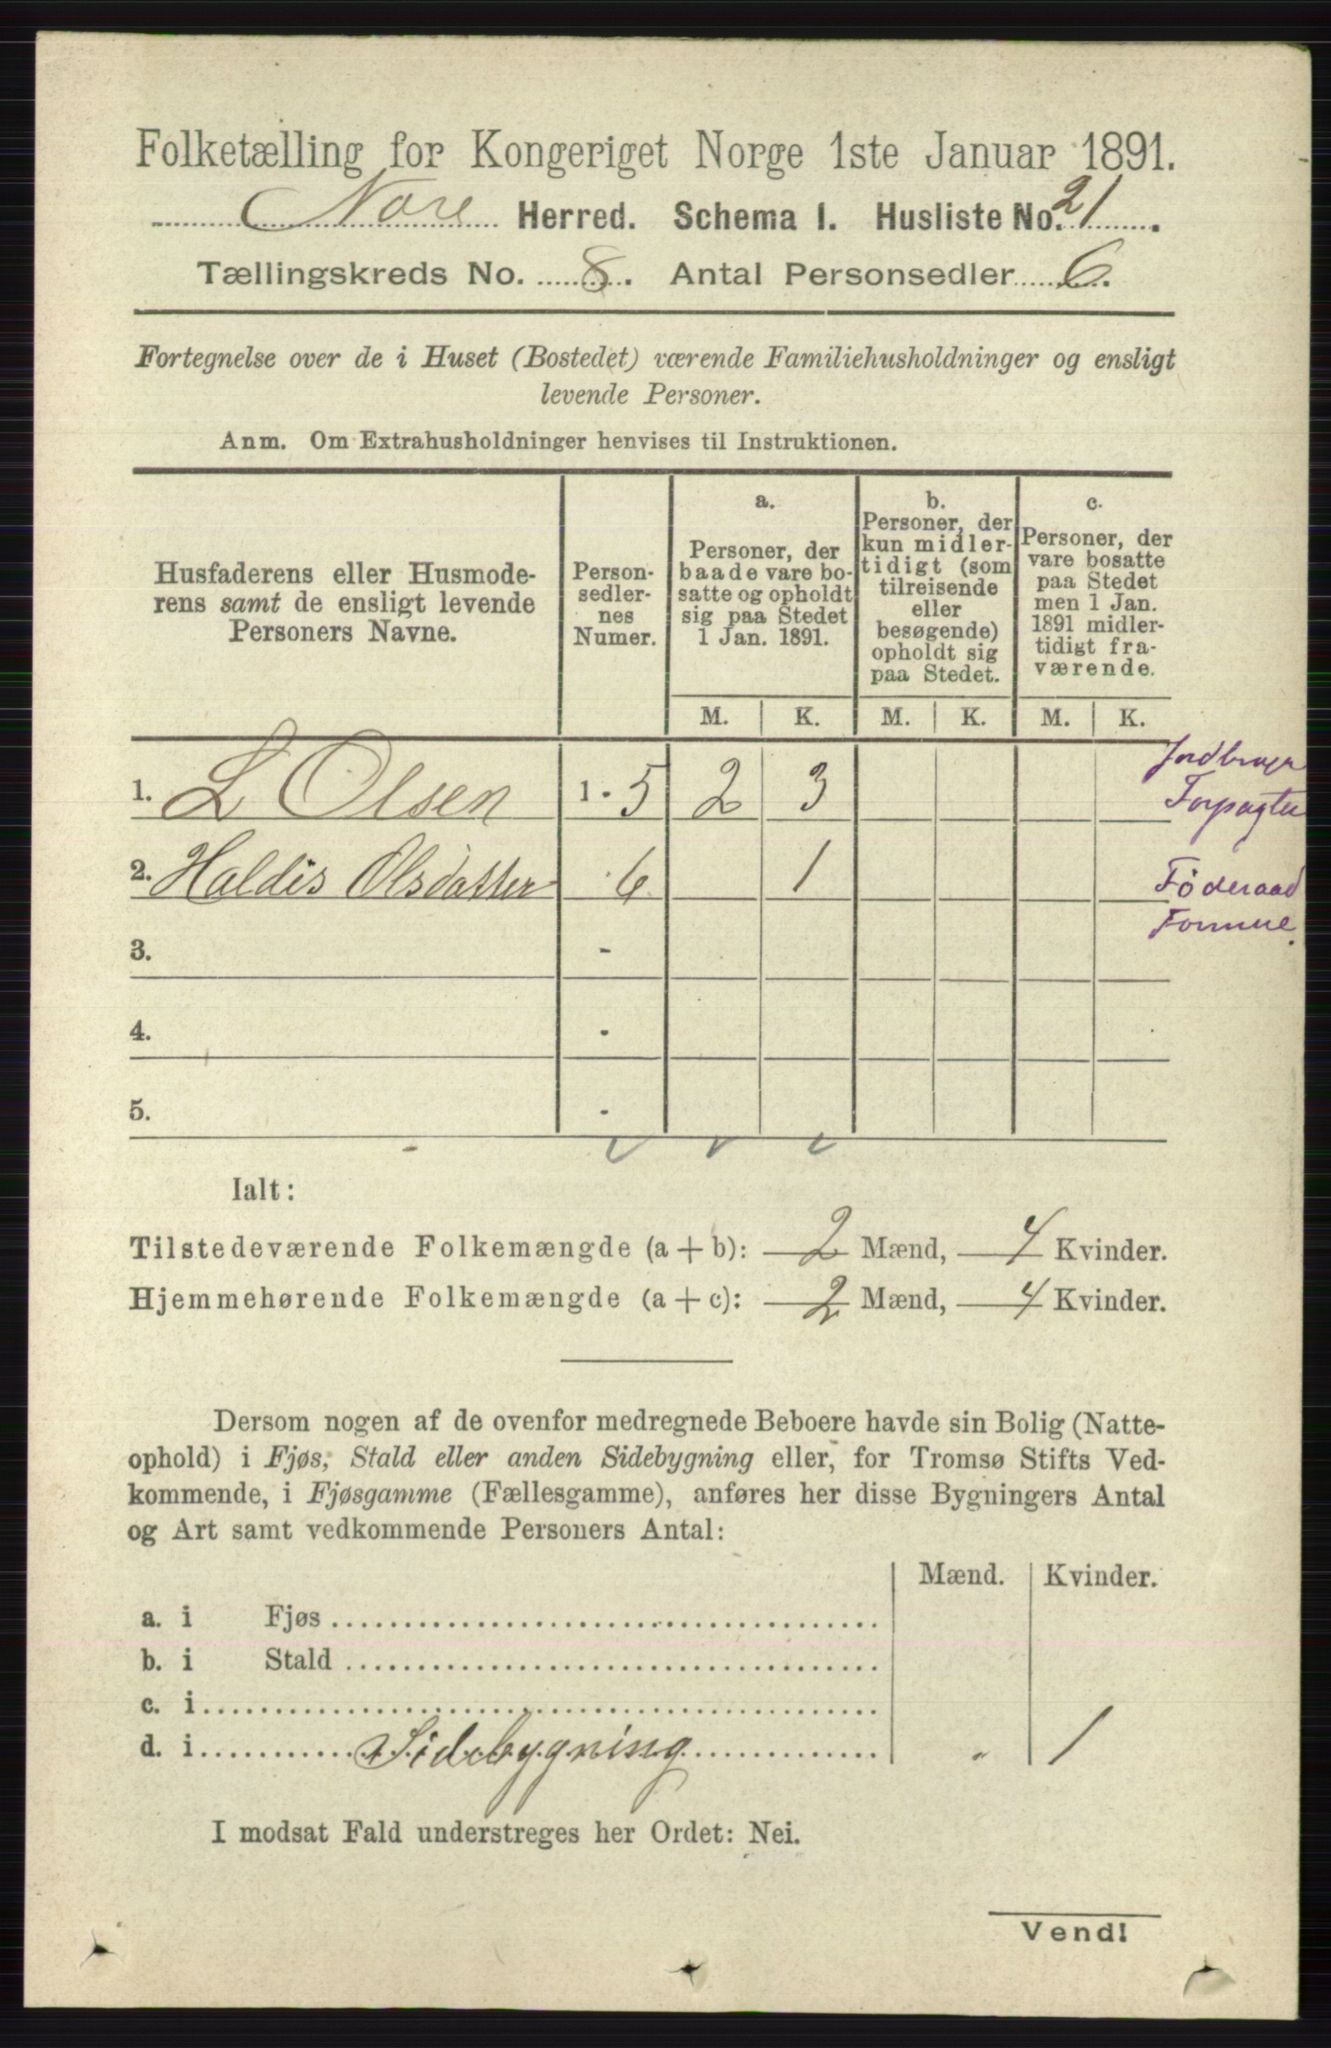 Folketælling for Kongeriget Norge 1ste Januar 1891.
Nore Herred. Schema 1. Husliste No. 21.
Tællingskreds No. 8. Antal Personsedler 6.
Fortegnelse over de i Huset (Bostedet) værende Familiehusholdninger og ensligt
levende Personer.
Anm. Om Extrahusholdninger henvises til Instruktionen.
Husfaderens eller Husmode-
rens samt de ensligt levende
Personers Navne.
Person-
sedler-
nes
Numer.
a.
Personer, der
baade vare bo-
satte og opholdt
sig paa Stedet
1 Jan. 1891.
b.
Personer, der
kun midler-
tidigt (som
tilreisende
eller
besøgende)
opholdt sig
paa Stedet.
c.
Personer, der
vare bosatte
paa Stedet
men 1 Jan.
1891 midler-
tidigt fra-
værende.
M. K. M. K. M. K.
1. L Olsen 1 - 5 2 3 Jordbruger
Forpagter
2. Haldis Olsdatter - 6 1 Föderaad
Formue.
3. -
4. -
5. -
Ialt:
Tilstedeværende Folkemængde (a + b): 2 Mænd, 4 Kvinder.
Hjemmehørende Folkemængde (a + c): 2 Mænd, 4 Kvinder.
Dersom nogen af de ovenfor medregnede Beboere havde sin Bolig (Natte-
ophold) i Fjøs, Stald eller anden Sidebygning eller, for Tromsø Stifts Ved-
kommende, i Fjøsgamme (Fællesgamme), anføres her disse Bygningers Antal
og Art samt vedkommende Personers Antal:
Mænd. Kvinder.
a. i Fjøs
b. i Stald
c. i
d. i Sidebygning " 1
I modsat Fald understreges her Ordet: Nei.
Vend!